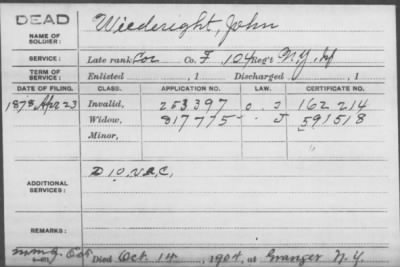 DEAD
NAME OF SOLDIER: Wiederight, John
SERVICE: Late rank Cor Co. F, 104 Reg't N.Y. Inf
TERM OF SERVICE: Enlisted , 1 Discharged , 1
DATE OF FILING. CLASS. APPLICATION NO. LAW. CERTIFICATE NO.
1878 Apr 23 Invalid, 253397 162214
Widow, 817775 591518
Minor,
ADDITIONAL SERVICES: D 10, V.R.C,
REMARKS:
Died Oct. 14, 1904, at Granger N.Y.